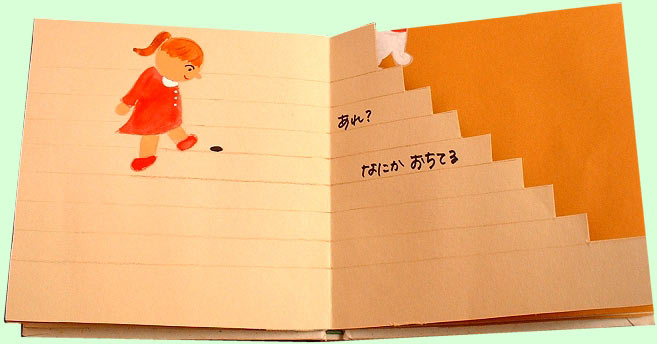 あれ?
なにか おちてる